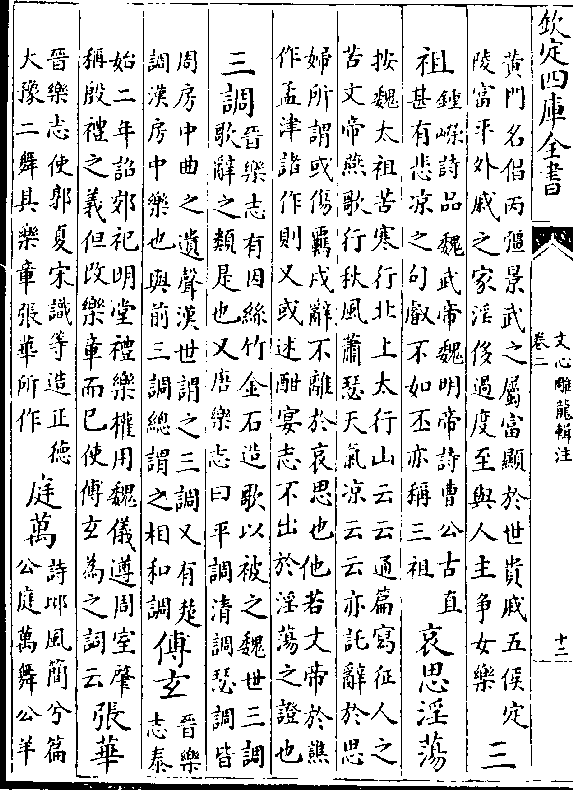 欽定四庫全書
文心雕龍輯注
卷二
十二
黃門名倡丙彊景武之屬富顯於世貴戚五侯定
陵富平外戚之家淫侈過度至與人主爭女樂
三
祖
鍾嶸詩品魏武帝魏明帝詩曹公古直
甚有悲凉之句叡不如丕亦稱三祖
哀思淫蕩
按魏太祖苦寒行北上太行山云云通篇寫征人之
苦文帝燕歌行秋風蕭瑟天氣凉云云亦託辭於思
婦所謂或傷羈戍辭不離於哀思也他若文帝於譙
作孟津諸作則又或述酣宴志不出於淫蕩之證也
三調
晉樂志有因絲竹金石造歌以被之魏世三調
歌辭之類是也又唐樂志曰平調清調瑟調皆
周房中曲之遺聲漢世謂之三調又有楚
調漢房中樂也與前三調總謂之相和調
傅玄
晉樂
志泰
始二年詔郊祀明堂禮樂權用魏儀遵周室肇
稱殷禮之義但改樂章而已使傅玄為之詞云
張華
晉樂志使郭夏宋識等造正德
大豫二舞其樂章張華所作
庭萬
詩邶風簡兮篇
公庭萬舞公羊